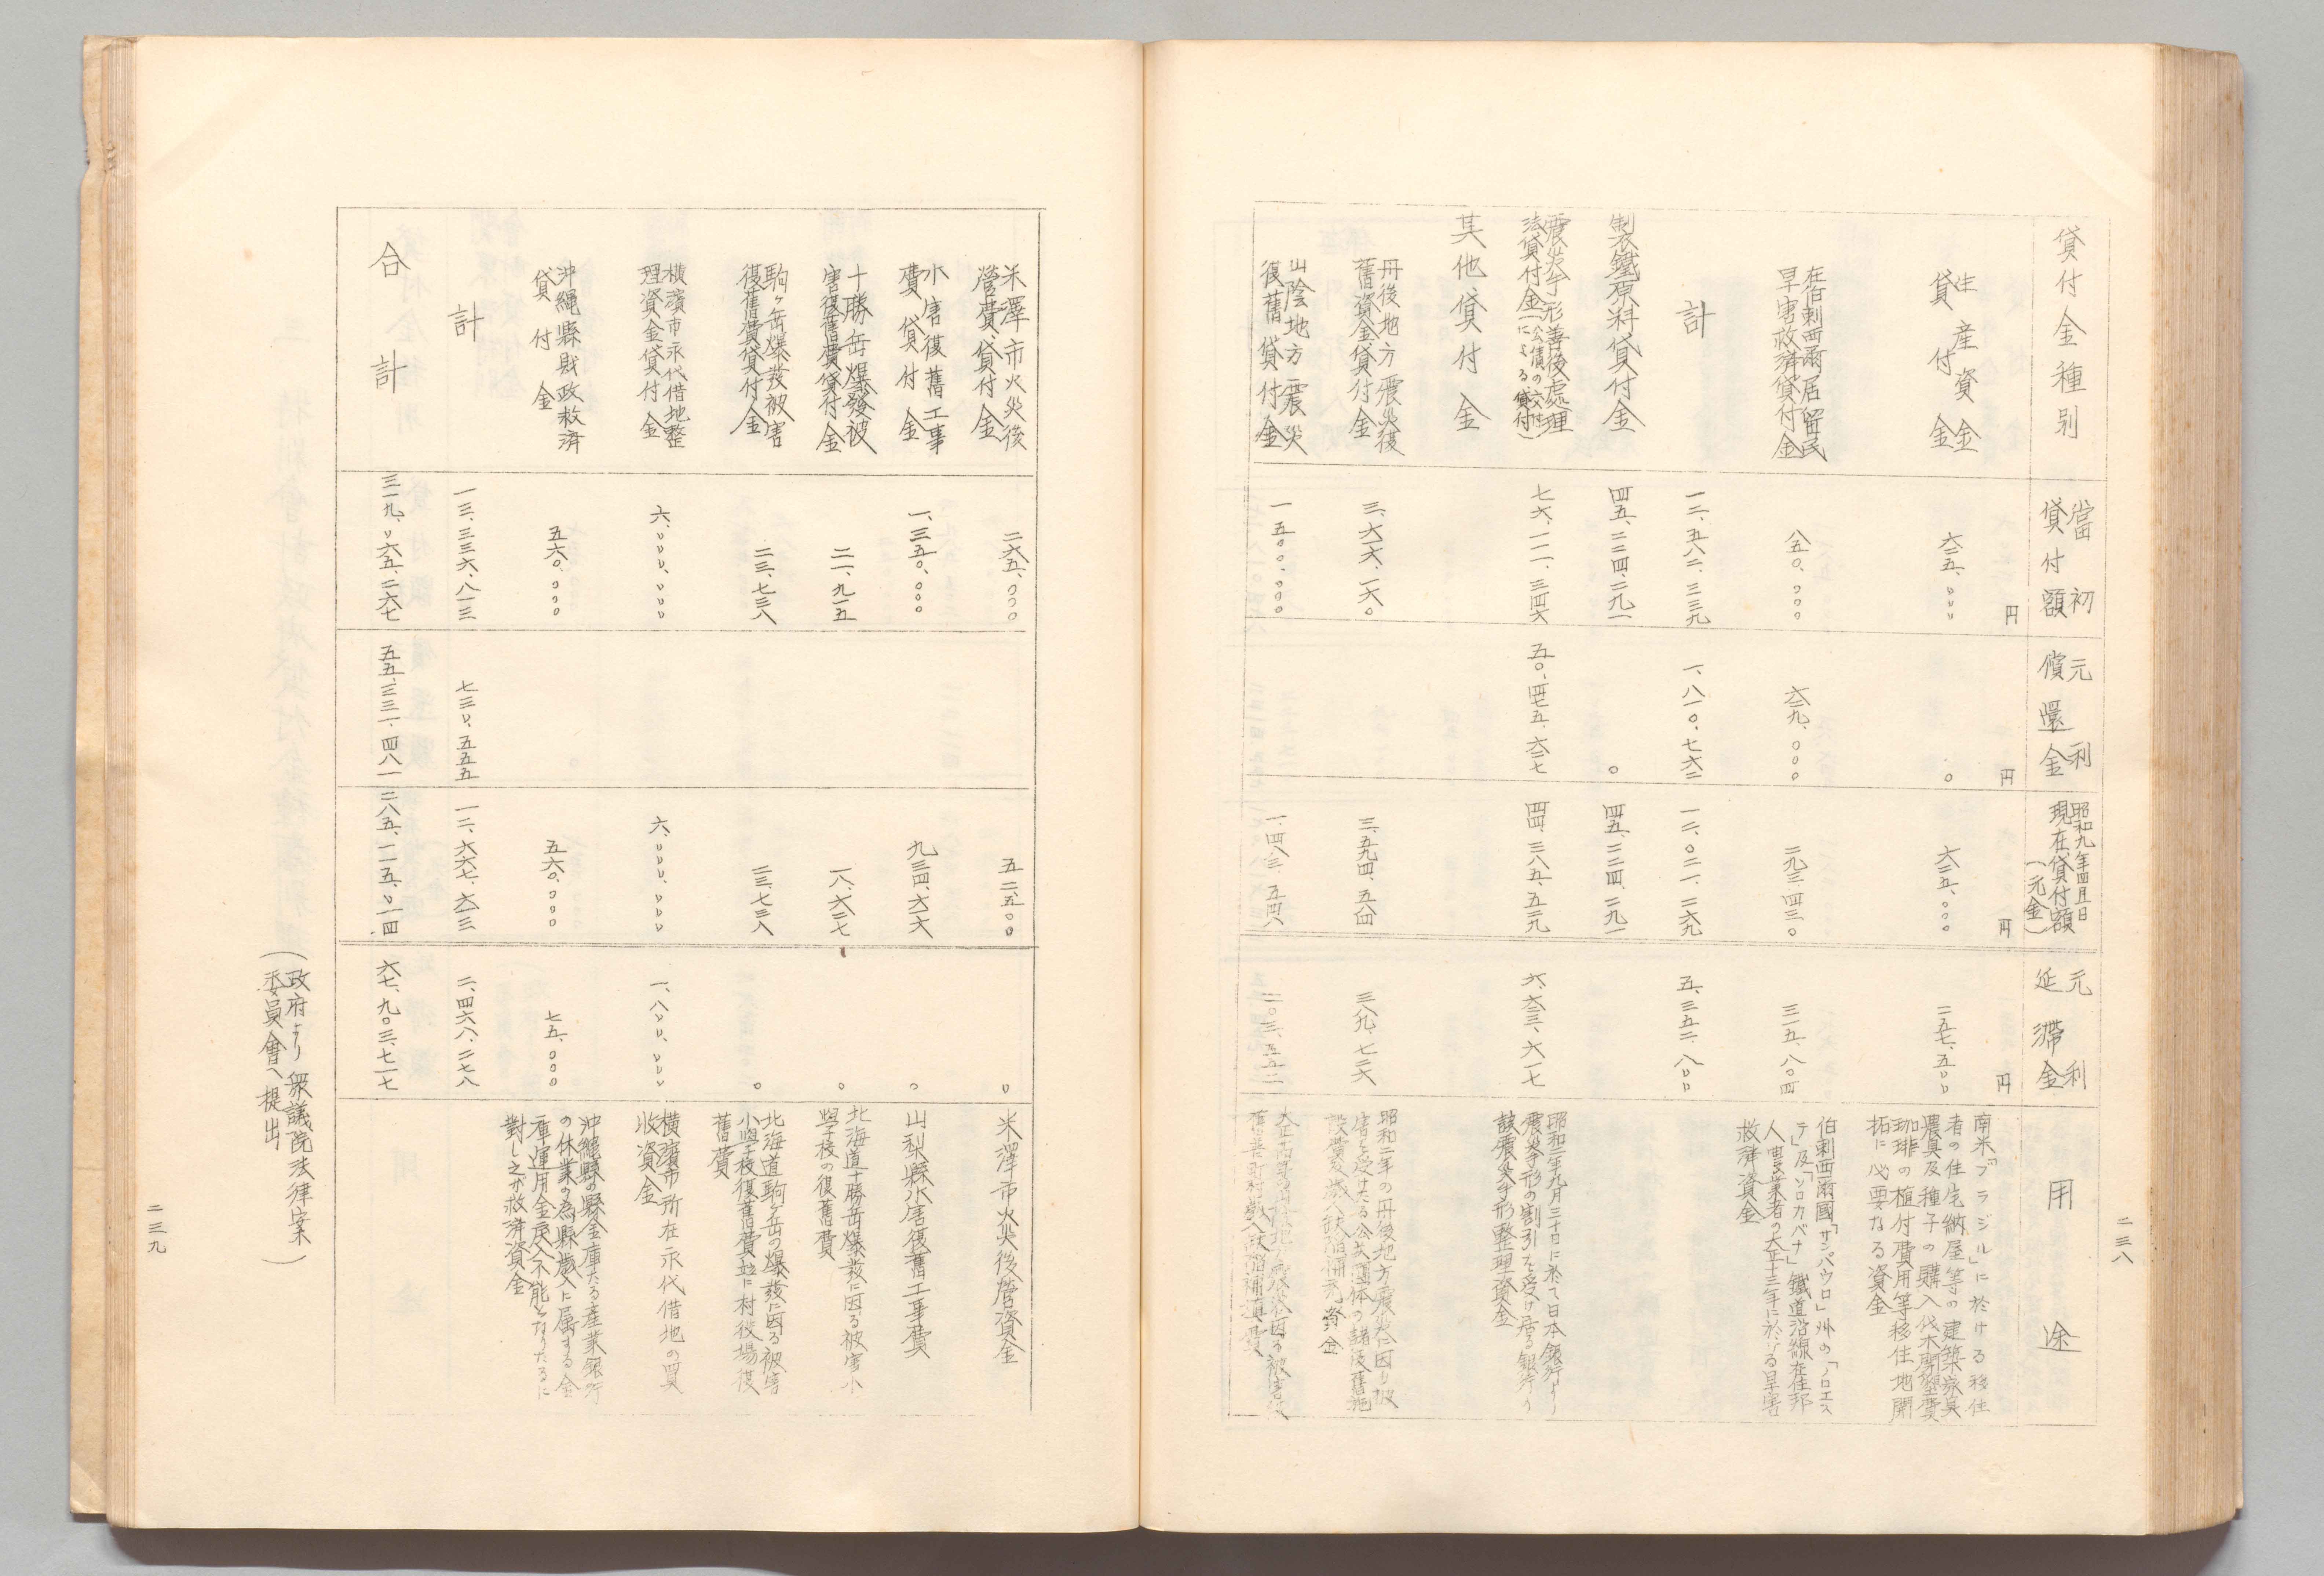 二三八
貸付金種別
當初
貸付額
元利
償還金
昭和九年四月一日
現在貸付額
(元金)
元利
延滯金
用途
円
円
円
円
生産資金
貸付金
六三五、〇〇〇
〇
六三五、〇〇〇
二五七、五〇〇
南米「ブラジル」に於ける移住
者の住宅納屋等の建築家具
農具及種子の購入伐木開墾費
珈琲の植付費用等移住地開
拓に必要なる資金
在伯剌西爾居留民
旱害救済貸付金
八五〇、〇〇〇
六三九、〇〇〇
二九三、四三〇
三一五、八〇四
伯剌西爾國「サンパウロ」州の「ノロエス
テ」及「ソロカバナ」鐵道沿線在住邦
人農業者の大正十三年に於ける旱害
救済資金
計
一二、五八二、三三九
一、八一〇、七六二
一二、〇二一、二六九
五、三五二、八〇〇
製鐵原料貸付金
四五、二二四、二九一
〇
四五、二二四、二九一
震災手形善後處理
法貸付金(公債の交付
による貸付)
七六、一一一、三四六
五〇、四七五、六三七
四四、三八五、五三九
六、六三三、六一七
昭和二年九月三十日に於て日本銀行より
震災手形の割引を受け居る銀行の
該震災手形整理資金
其他貸付金
丹後地方震災復
舊資金貸付金
三、六六六、一六〇
三、五九四、五八四
三八九、七二六
昭和二年の丹後地方震災に因り被
害を受けたる公共團体の諸復舊施
設費及歳入缺陥補充資金
山陰地方震災
復舊貸付金
一、五〇〇、〇〇〇
一、四八三、五四八
二〇三、五五二
米澤市火災後
營費貸付金
二六五、〇〇〇
五二、五〇〇
〇
米澤市火災後營資金
水害復舊工事
費貸付金
一、三五〇、〇〇〇
九三四、六六六
〇
山梨縣水害復舊工事費
十勝岳爆發被
害復舊費貸付金
二一、九一五
一八、六三七
〇
北海道十勝岳爆發に因る被害小
學校の復舊費
駒ヶ岳爆發被害
復舊費貸付金
二三、七三八
二三、七三八
〇
北海道駒ヶ岳の爆發に因る被害
小學校復舊費並に村役場復
舊費
横濱市永代借地整
理資金貸付金
六、〇〇〇、〇〇〇
六、〇〇〇、〇〇〇
一、八〇〇、〇〇〇
横濱市所在永代借地の買
收資金
沖縄縣財政救済
貸付金
五六〇、〇〇〇
五六〇、〇〇〇
七五、〇〇〇
沖縄縣の縣金庫たる産業銀行
の休業の為縣歳入に屬する金
庫運用金戻入不能となりたるに
對し之が救済資金
計
一三、三三六、八一三
七三〇、五五五
一二、六六七、六三三
二、四六八、二七八
合計
三一九、〇六五、二六七
五五、三三一、四八一
二八五、一一五、〇一四
六七、九〇三、七一七
(政府より衆議院法律案
委員會へ提出)
二三九